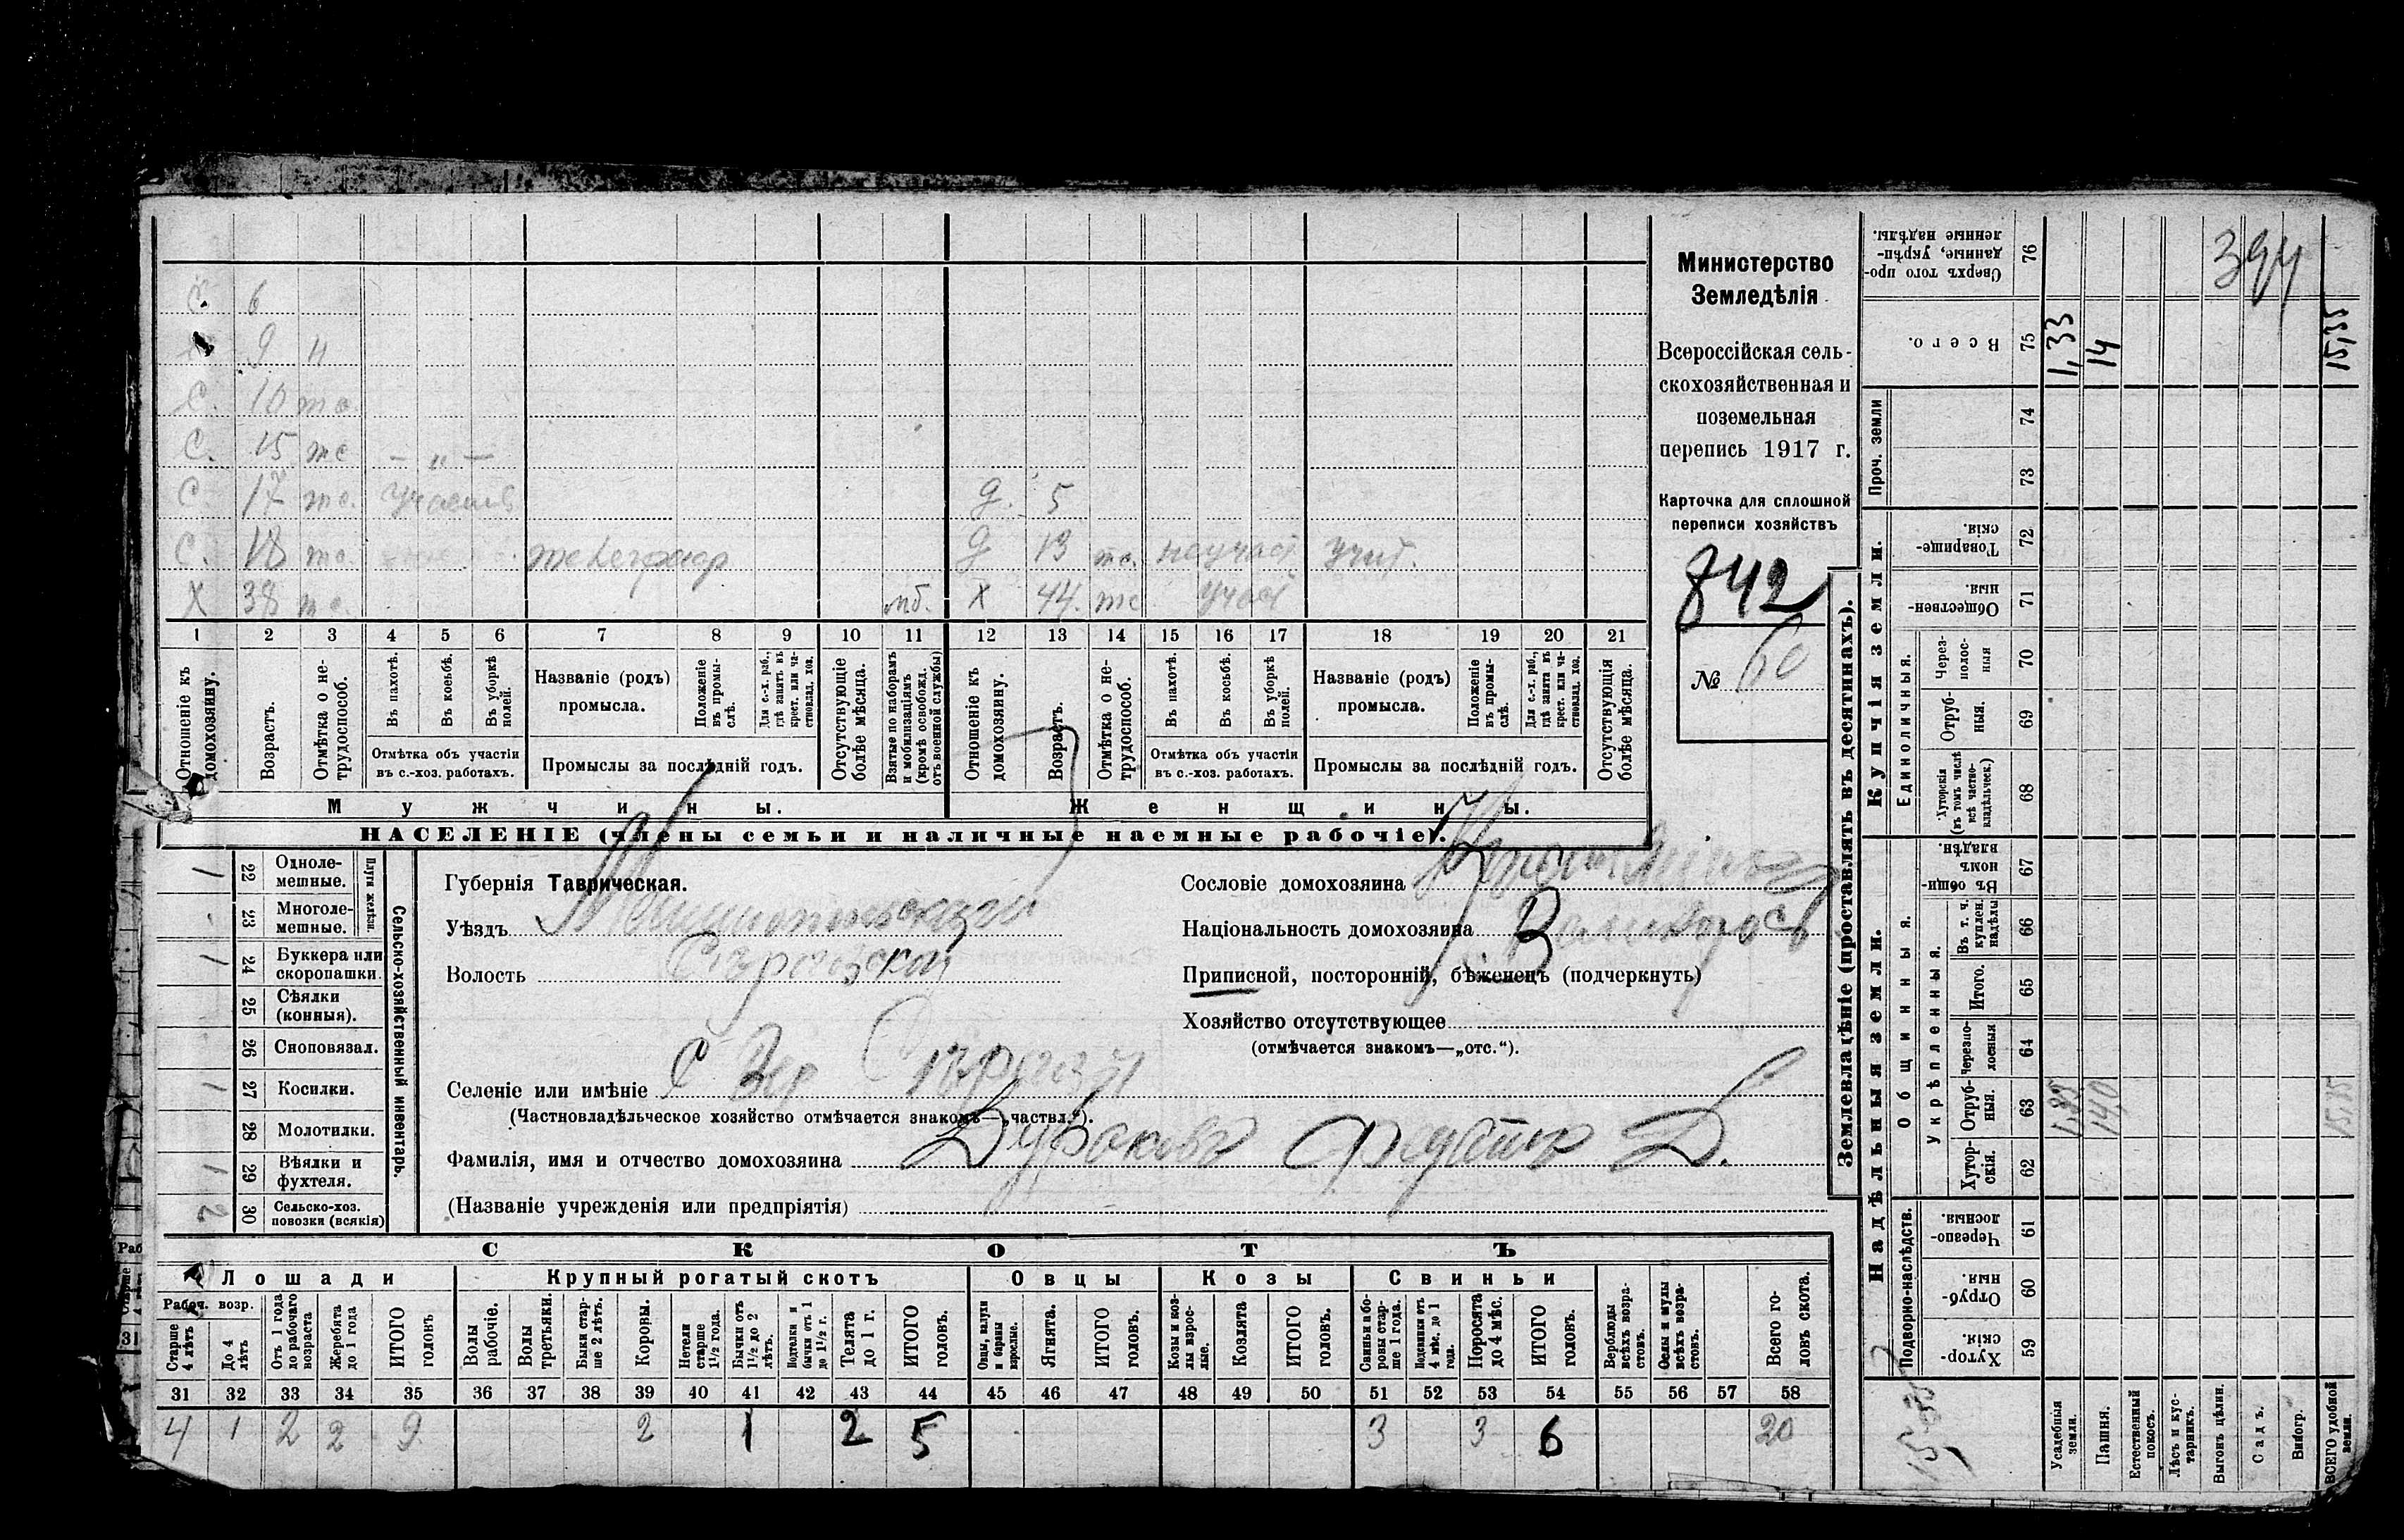 С. 6
9 "
С. 10 то
С. 15 то - " -
С. 17 то. участв д. 5
С. 18 то. телеграф д 13 то. неучаст учит.
Х 38 то. мб. Х 44. то участ
1 2 3 4 5 6 7 8 9 10 11 12 13 14 15 16 17 18 19 20 21
Отношеніе къ домохозяину.
Возрастъ.
Отмѣтка о не-трудоспособ.
Въ пахотѣ.
Въ косьбѣ.
Въ уборкѣ полей.
Отмѣтка объ участіи въ с.-хоз. работахъ.
Названіе (родъ) промысла.
Положеніе въ промы-слѣ.
Для с.-х. раб., гдѣ занятъ въ крест. или ча-стновлад. хоз.
Промыслы за послѣдній годъ.
Отсутствующіе болѣе мѣсяца.
Взятые по наборамъ и мобилизаціямъ (кромѣ освобожд. отъ военной службы)
Отношеніе къ домохозяину.
Возрастъ.
Отмѣтка о не-трудоспособ.
Въ пахотѣ.
Въ косьбѣ.
Въ уборкѣ полей.
Отмѣтка объ участіи въ с.-хоз. работахъ.
Названіе (родъ) промысла.
Положеніе въ промы-слѣ.
Для с.-х. раб., гдѣ занята въ крест. или ча-стновлад. хоз.
Промыслы за послѣдній годъ.
Отсутствующія болѣе мѣсяца.
Мужчины. Женщины.
НАСЕЛЕНІЕ (члены семьи и наличные наемные рабочіе).
Министерство
Земледѣлія
Всероссійская сель-
скохозяйственная и
поземельная
перепись 1917 г.
Карточка для сплошной
переписи хозяйствъ
842
№ 60
1 22 Одноле-мешные.
23 Многоле-мешные.
Плуги желѣзн.
1 24 Буккера или скоропашки.
25 Сѣялки (конныя).
26 Сноповязал.
1 27 Косилки.
28 Молотилки.
1 29 Вѣялки и фухтеля.
2 30 Сельско-хоз. повозки (всякія)
Сельско-хозяйственный инвентарь.
Губернія Таврическая.
Уѣздъ Мелитопольский
Волость
Селеніе или имѣніе С
(Частновладѣльческое хозяйство отмѣчается знакомъ—„частвл.“).
Фамилія, имя и отчество домохозяина Д.
(Названіе учрежденія или предпріятія)
Сословіе домохозяина
Національность домохозяина Великоросъ
Приписной, посторонній, бѣженецъ (подчеркнуть)
Хозяйство отсутствующее
(отмѣчается знакомъ—„отс.“).
СКОТЪ
Лошади Крупный рогатый скотъ Овцы Козы Свиньи
Рабоч. возр.
Старше 4 лѣтъ
До 4 лѣтъ
Отъ 1 года до рабочаго возраста
Жеребята до 1 года
ИТОГО головъ
Волы рабочіе.
Волы третьяки.
Быки стар-ше 2 лѣтъ.
Коровы.
Нетели старше 1½ года.
Бычки отъ 1½ до 2 лѣтъ.
Подтелки и бычки отъ 1 до 1½ г.
Телята до 1 г.
ИТОГО головъ.
Овцы, валухи и бараны взрослые.
Ягнята.
ИТОГО головъ.
Козы и коз-лы взрос-лые.
Козлята
ИТОГО головъ.
Свиньи бо-ровы стар-ше 1 года.
Подсвинки отъ 4 мѣс. до 1 года.
Поросята до 4 мѣс.
ИТОГО головъ.
Верблюды всѣхъ возра-стовъ.
Ослы и мулы всѣхъ возра-стовъ.
Всего го-ловъ скота.
31 32 33 34 35 36 37 38 39 40 41 42 43 44 45 46 47 48 49 50 51 52 53 54 55 56 57 58
4 1 2 2 9 2 1 2 5 3 3 6 20
Землевладѣніе (проставлять въ десятинахъ).
Сверхъ того про-данные, укрѣп-ленные надѣлы. 76
394
Всего. 75 1,33 14 15,35
Проч. земли 74 73
Купчія земли.
Товарище-скія. 72
Обществен-ныя. 71
Единоличныя.
Через-полос-ныя 70
Отруб-ныя. 69
Хуторскія (въ томъ числѣ всѣ частно-владѣльческ.) 68
Надѣльныя земли.
Общинныя.
Въ общин-номъ владѣн. 67
Укрѣпленныя.
Въ т. ч. куплен. надѣлы 66
Итого. 65
Черезпо-лосныя 64
Отруб-ныя. 63 140 15.35
Хутор-скія. 62
Подворно-наслѣдств.
Черезпо-лосныя. 61
Отруб-ныя. 60
Хутор-скія. 59
Усадебныя земли.
Пашня.
Естественный покосъ.
Лѣсъ и кус-тарникъ.
Выгонъ цѣлин.
Садъ.
Виногр.
ВСЕГО удобной земли.